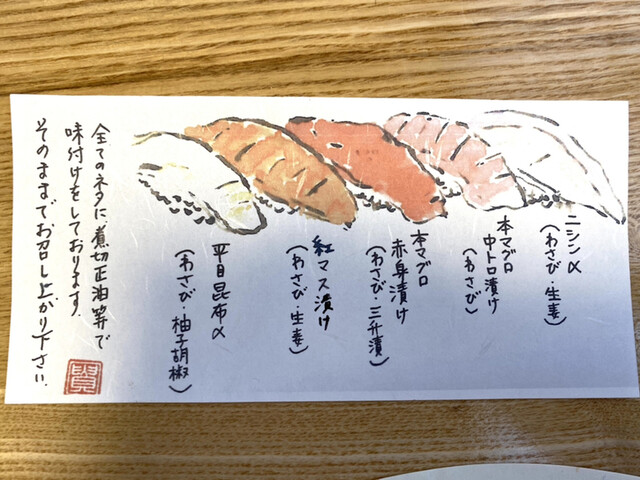 ニシン〆
(わさび・生姜)
本マグロ
中トロ漬け
(わさび)
本マグロ
赤身漬け
(わさび・三升漬)
紅マス漬け
(わさび・生姜)
平目昆布〆
(わさび・柚子胡椒)
全てのネタに、煮切正油等で
味付けをしております。
そのままでお召し上がり下さい。